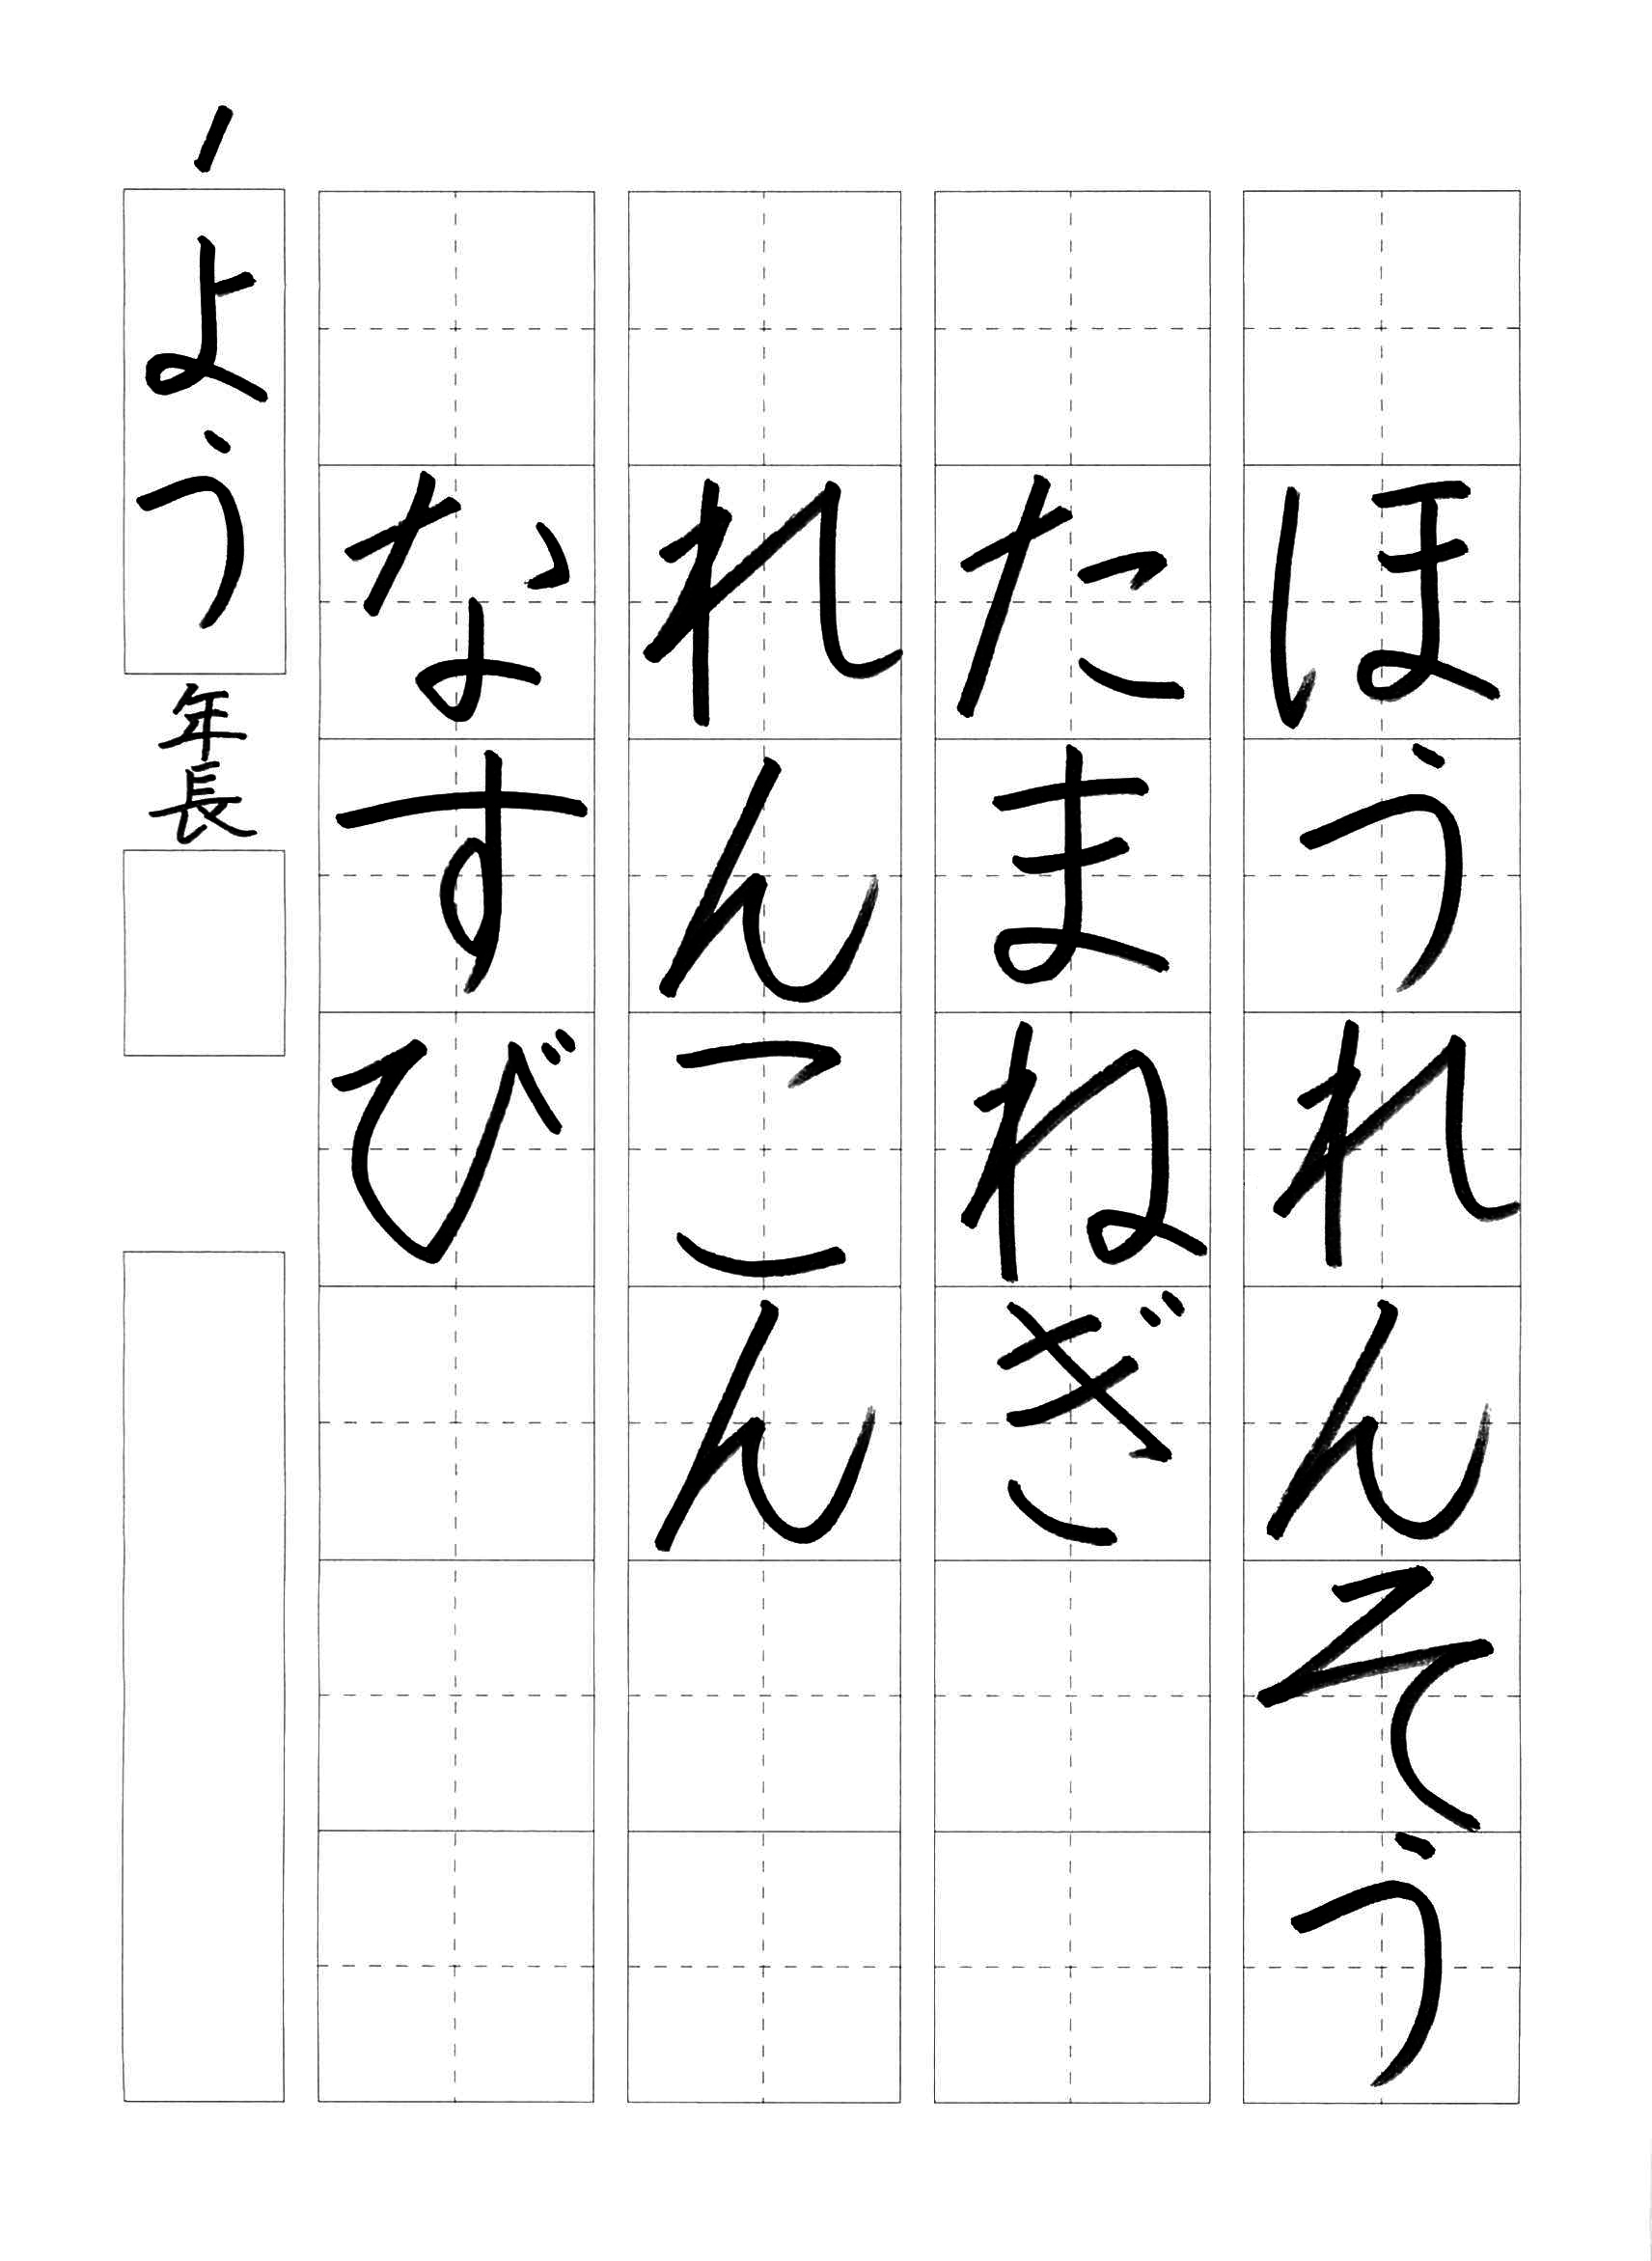 ほうれんそう
たまねぎ
れんこん
なすび
1
よう
年長